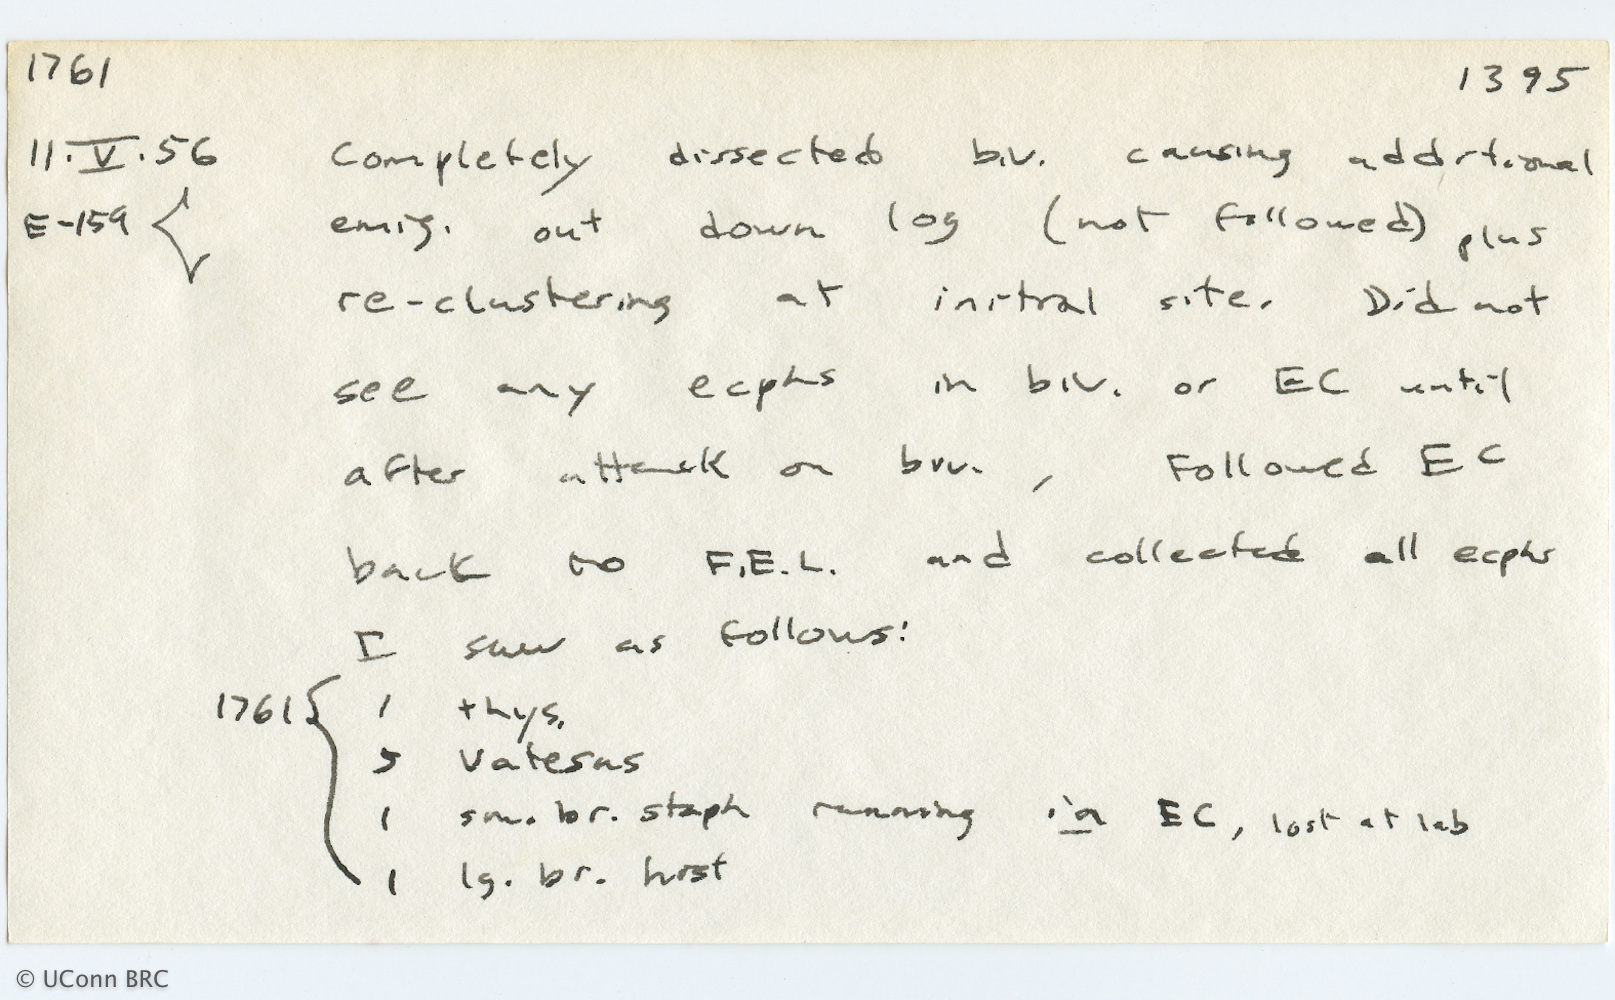 1761 1395
11.V.56 Completely dissected biv. causing additional
E-159 { emig. out down log (not followed) plus
re-clustering at initial site. Did not
see any ecphs in biv. or EC until
after attack on biv., Followed EC
back to F.E.L. and collected all ecphs
I saw as follows:
1761 { 1 thys.
5 Vatesus
1 sm. br. staph running in EC, lost at lab
1 lg. br. hist
© UConn BRC